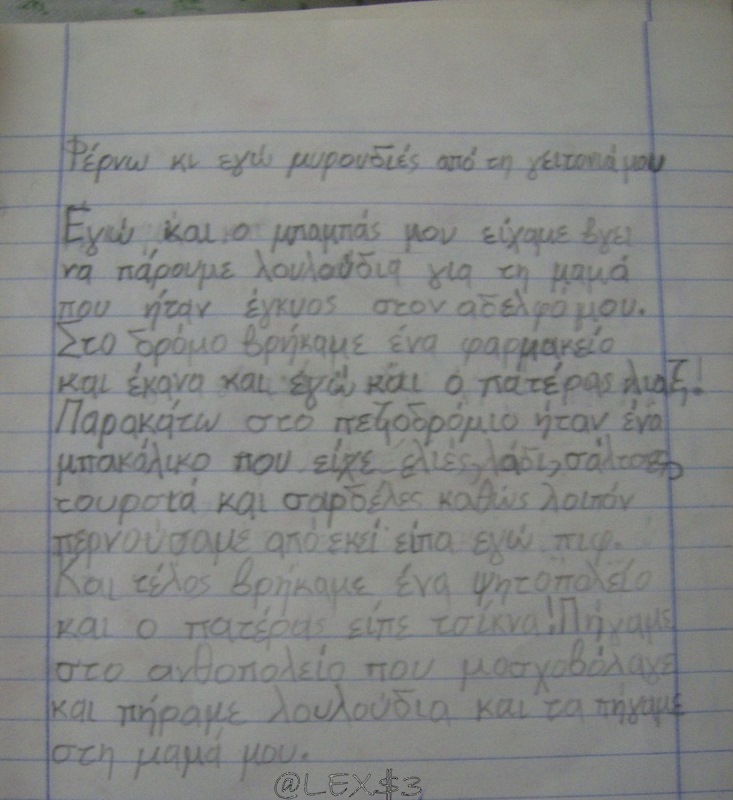 Φέρνω κι εγώ μυρουδιές από τη γειτονιά μου
Εγώ και ο μπαμπάς μου είχαμε βγει
να πάρουμε λουλούδια για τη μαμά
που ήταν έγκυος στον αδελφό μου.
Στο δρόμο βρήκαμε ένα φαρμακείο
και έκανα και εγώ και ο πατέρας λιαξ!
Παρακάτω στο πεζοδρόμιο ήταν ένα
μπακάλικο που είχε ελιές, λάδι, σάλτσες,
τουρσιά και σαρδέλες καθώς λοιπόν
περνούσαμε από εκεί είπα εγώ πιφ.
Και τέλος βρήκαμε ένα ψητοπολείο
και ο πατέρας είπε τσίκνα! Πήγαμε
στο ανθοπολείο που μοσχοβόλαγε
και πήραμε λουλούδια και τα πήγαμε
στη μαμά μου.
@LEX$3